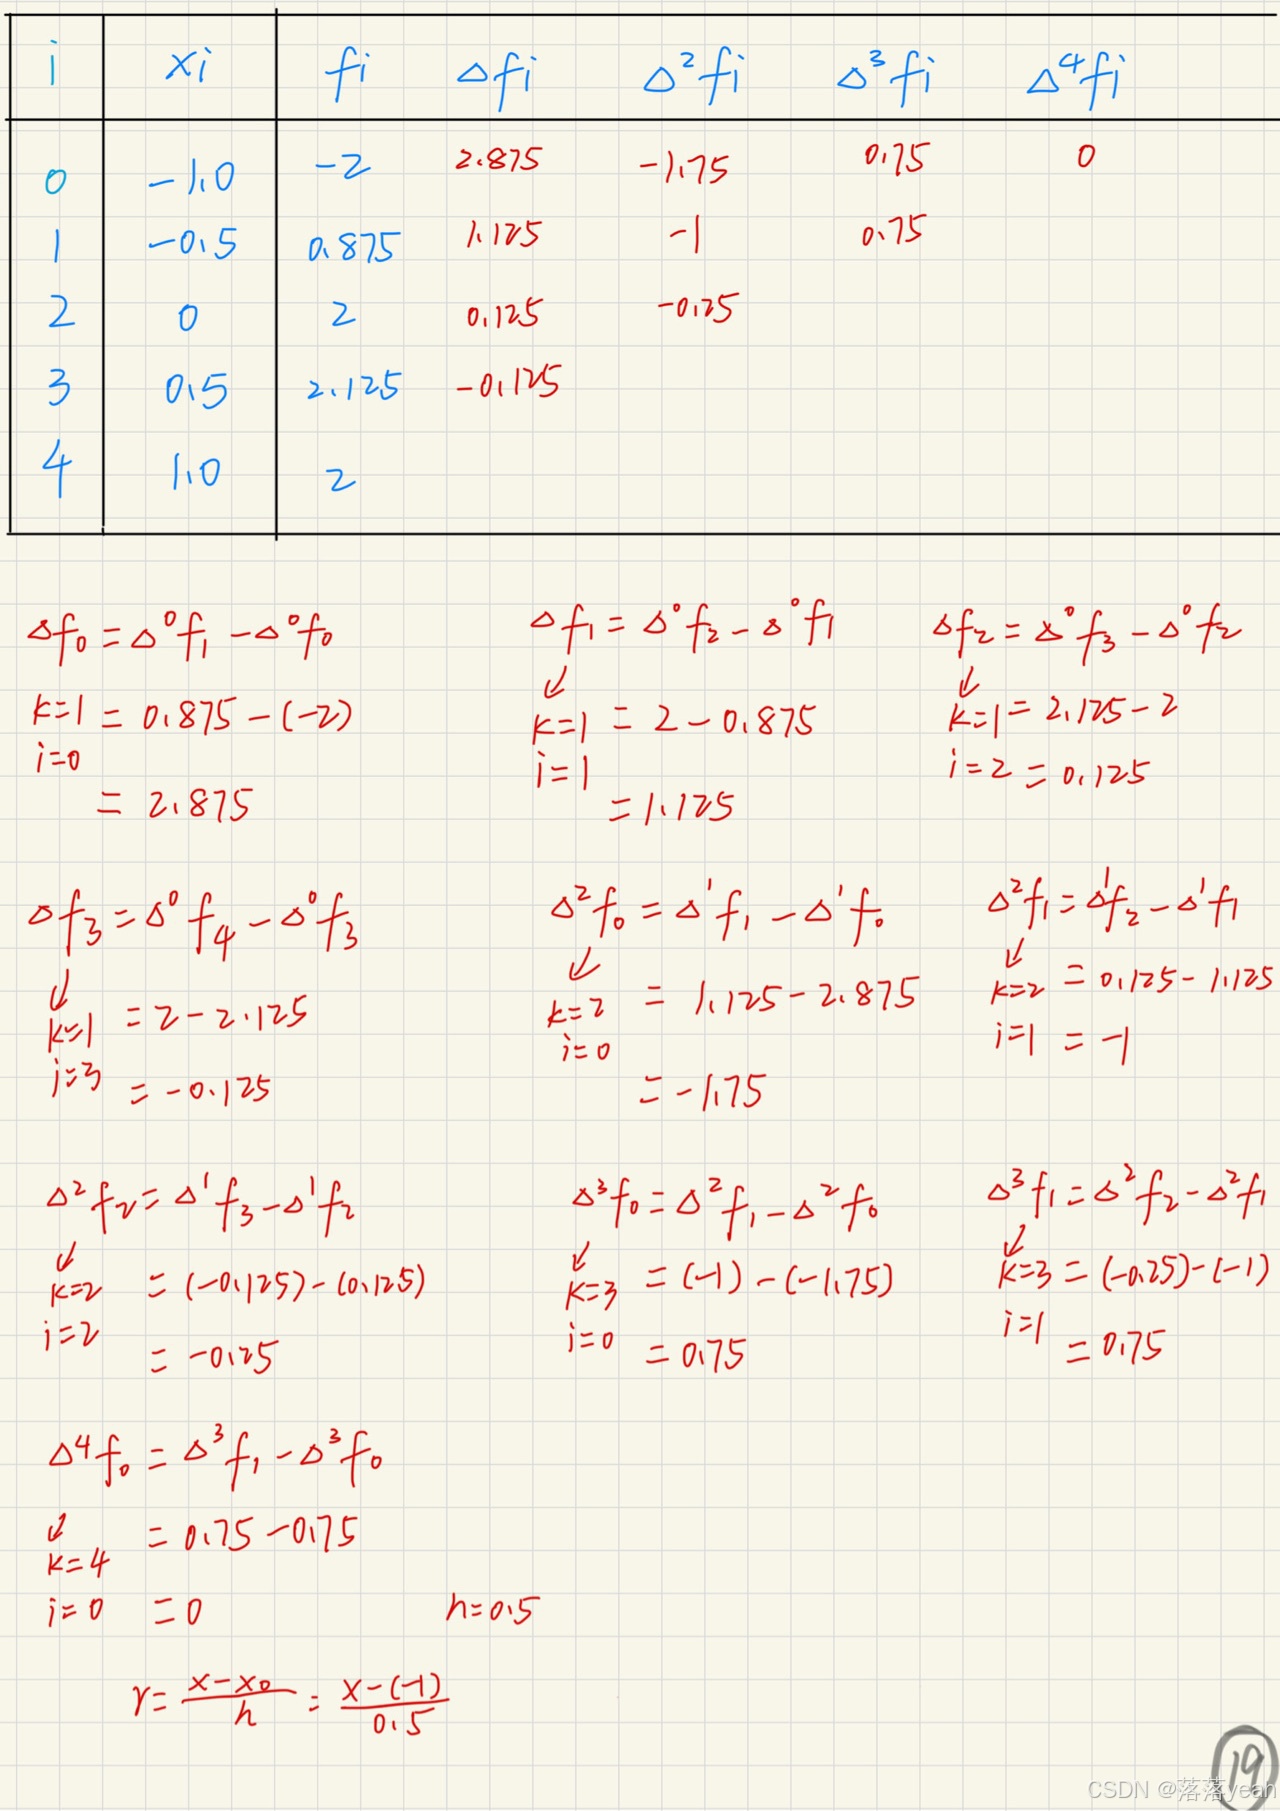 i xi fi Δfi Δ²fi Δ³fi Δ⁴fi
0 -1.0 -2 2.875 -1.75 0.75 0
1 -0.5 0.875 1.125 -1 0.75
2 0 2 0.125 -0.25
3 0.5 2.125 -0.125
4 1.0 2
Δf₀ = Δ⁰f₁ - Δ⁰f₀
k=1 = 0.875 - (-2)
i=0
= 2.875
Δf₁ = Δ⁰f₂ - Δ⁰f₁
↙
k=1 = 2 - 0.875
i=1
= 1.125
Δf₂ = Δ⁰f₃ - Δ⁰f₂
↙
k=1 = 2.125 - 2
i=2 = 0.125
Δf₃ = Δ⁰f₄ - Δ⁰f₃
↙
k=1 = 2 - 2.125
i=3 = -0.125
Δ²f₀ = Δ¹f₁ - Δ¹f₀
↙
k=2 = 1.125 - 2.875
i=0
= -1.75
Δ²f₁ = Δ¹f₂ - Δ¹f₁
↙
k=2 = 0.125 - 1.125
i=1 = -1
Δ²f₂ = Δ¹f₃ - Δ¹f₂
↙
k=2 = (-0.125) - (0.125)
i=2
= -0.25
Δ³f₀ = Δ²f₁ - Δ²f₀
↙
k=3 = (-1) - (-1.75)
i=0 = 0.75
Δ³f₁ = Δ²f₂ - Δ²f₁
↙
k=3 = (-0.25) - (-1)
i=1
= 0.75
Δ⁴f₀ = Δ³f₁ - Δ³f₀
↙
= 0.75 - 0.75
k=4
i=0 = 0
h=0.5
r = (x - x₀)/h = (x - (-1))/0.5
19
CSDN @落落yeah